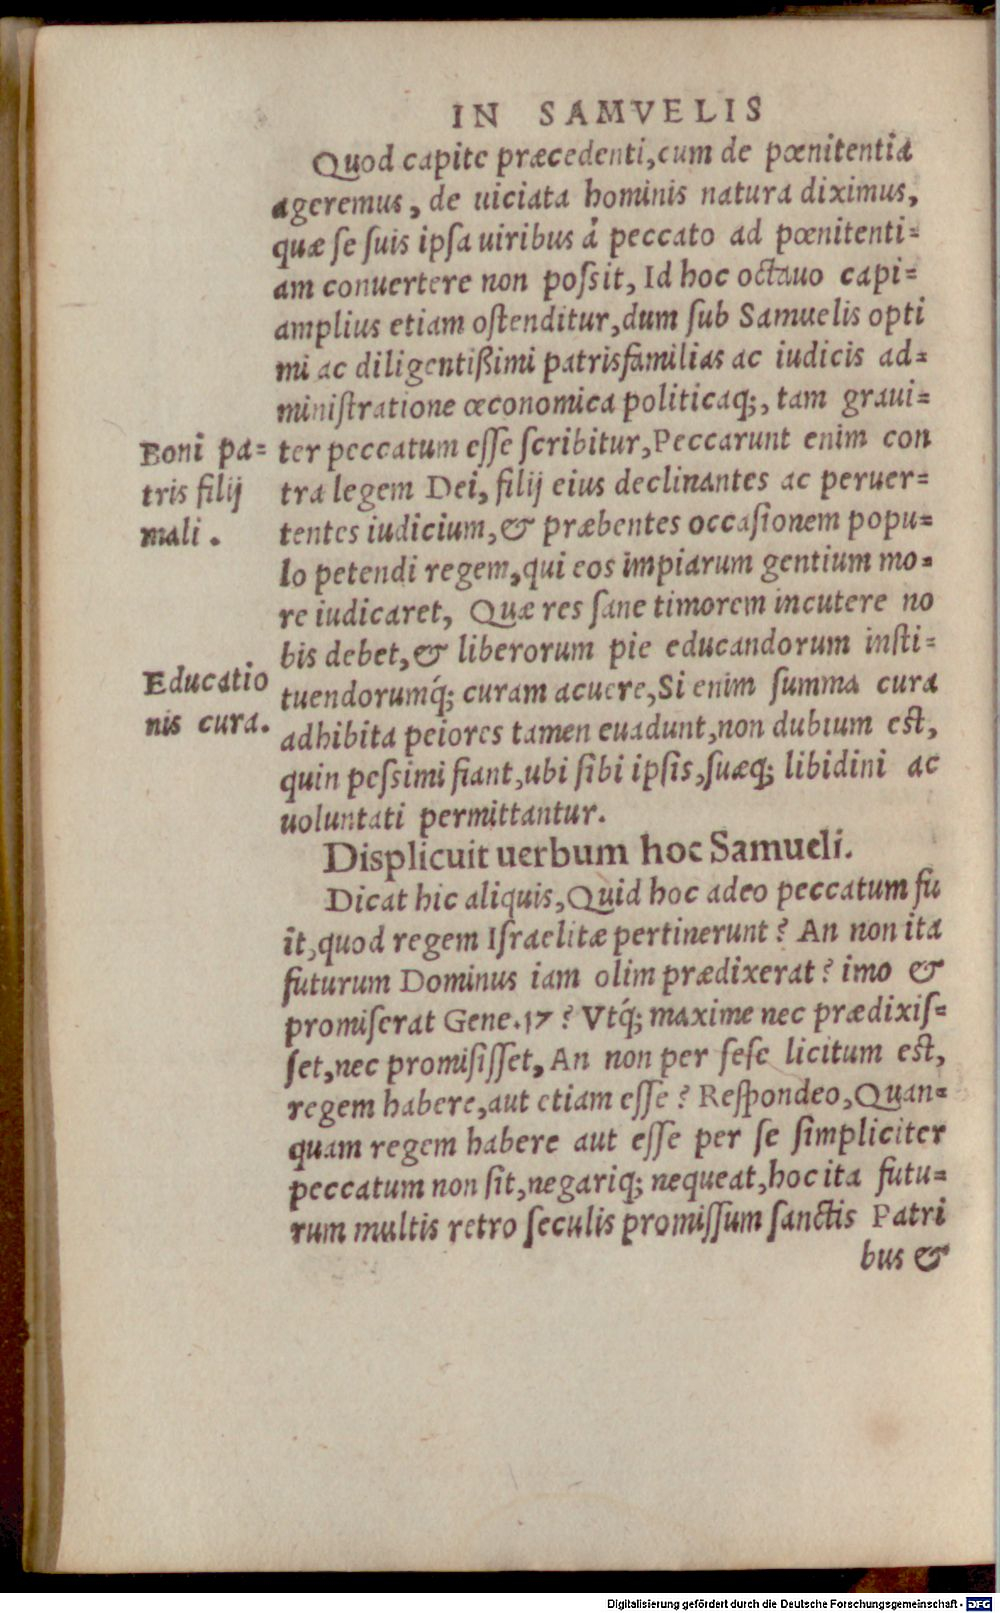 IN SAMVELIS
Quod capite præcedenti, cum de pœnitentia
ageremus, de uiciata hominis natura diximus,
quæ se suis ipsa uiribus à peccato ad pœnitenti=
am conuertere non possit, Id hoc octauo capi=
amplius etiam ostenditur, dum sub Samuelis opti
mi ac diligentißimi patrisfamilias ac iudicis ad=
ministratione œconomica politicaq;, tam graui=
Boni pa=
tris filij
mali.
ter peccatum esse scribitur, Peccarunt enim con
tra legem Dei, filij eius declinantes ac peruer=
tentes iudicium, & præbentes occasionem popu=
lo petendi regem, qui eos impiarum gentium mo=
re iudicaret, Quæ res sane timorem incutere no
bis debet, & liberorum pie educandorum insti=
Educatio
nis cura.
tuendorumq́; curam acuere, Si enim summa cura
adhibita peiores tamen euadunt, non dubium est,
quin pessimi fiant, ubi sibi ipsis, suæq; libidini ac
uoluntati permittantur.
Displicuit uerbum hoc Samueli.
Dicat hic aliquis, Quid hoc adeo peccatum fu
it, quod regem Israelitæ pertinerunt? An non ita
futurum Dominus iam olim prædixerat? imo &
promiserat Gene. 17? Vtq́; maxime nec prædixis=
set, nec promisisset, An non per sese licitum est,
regem habere, aut etiam esse? Respondeo, Quan=
quam regem habere aut esse per se simpliciter
peccatum non sit, negariq; nequeat, hoc ita futu=
rum multis retro seculis promissum sanctis Patri
bus &
Digitalisierung gefördert durch die Deutsche Forschungsgemeinschaft - DFG